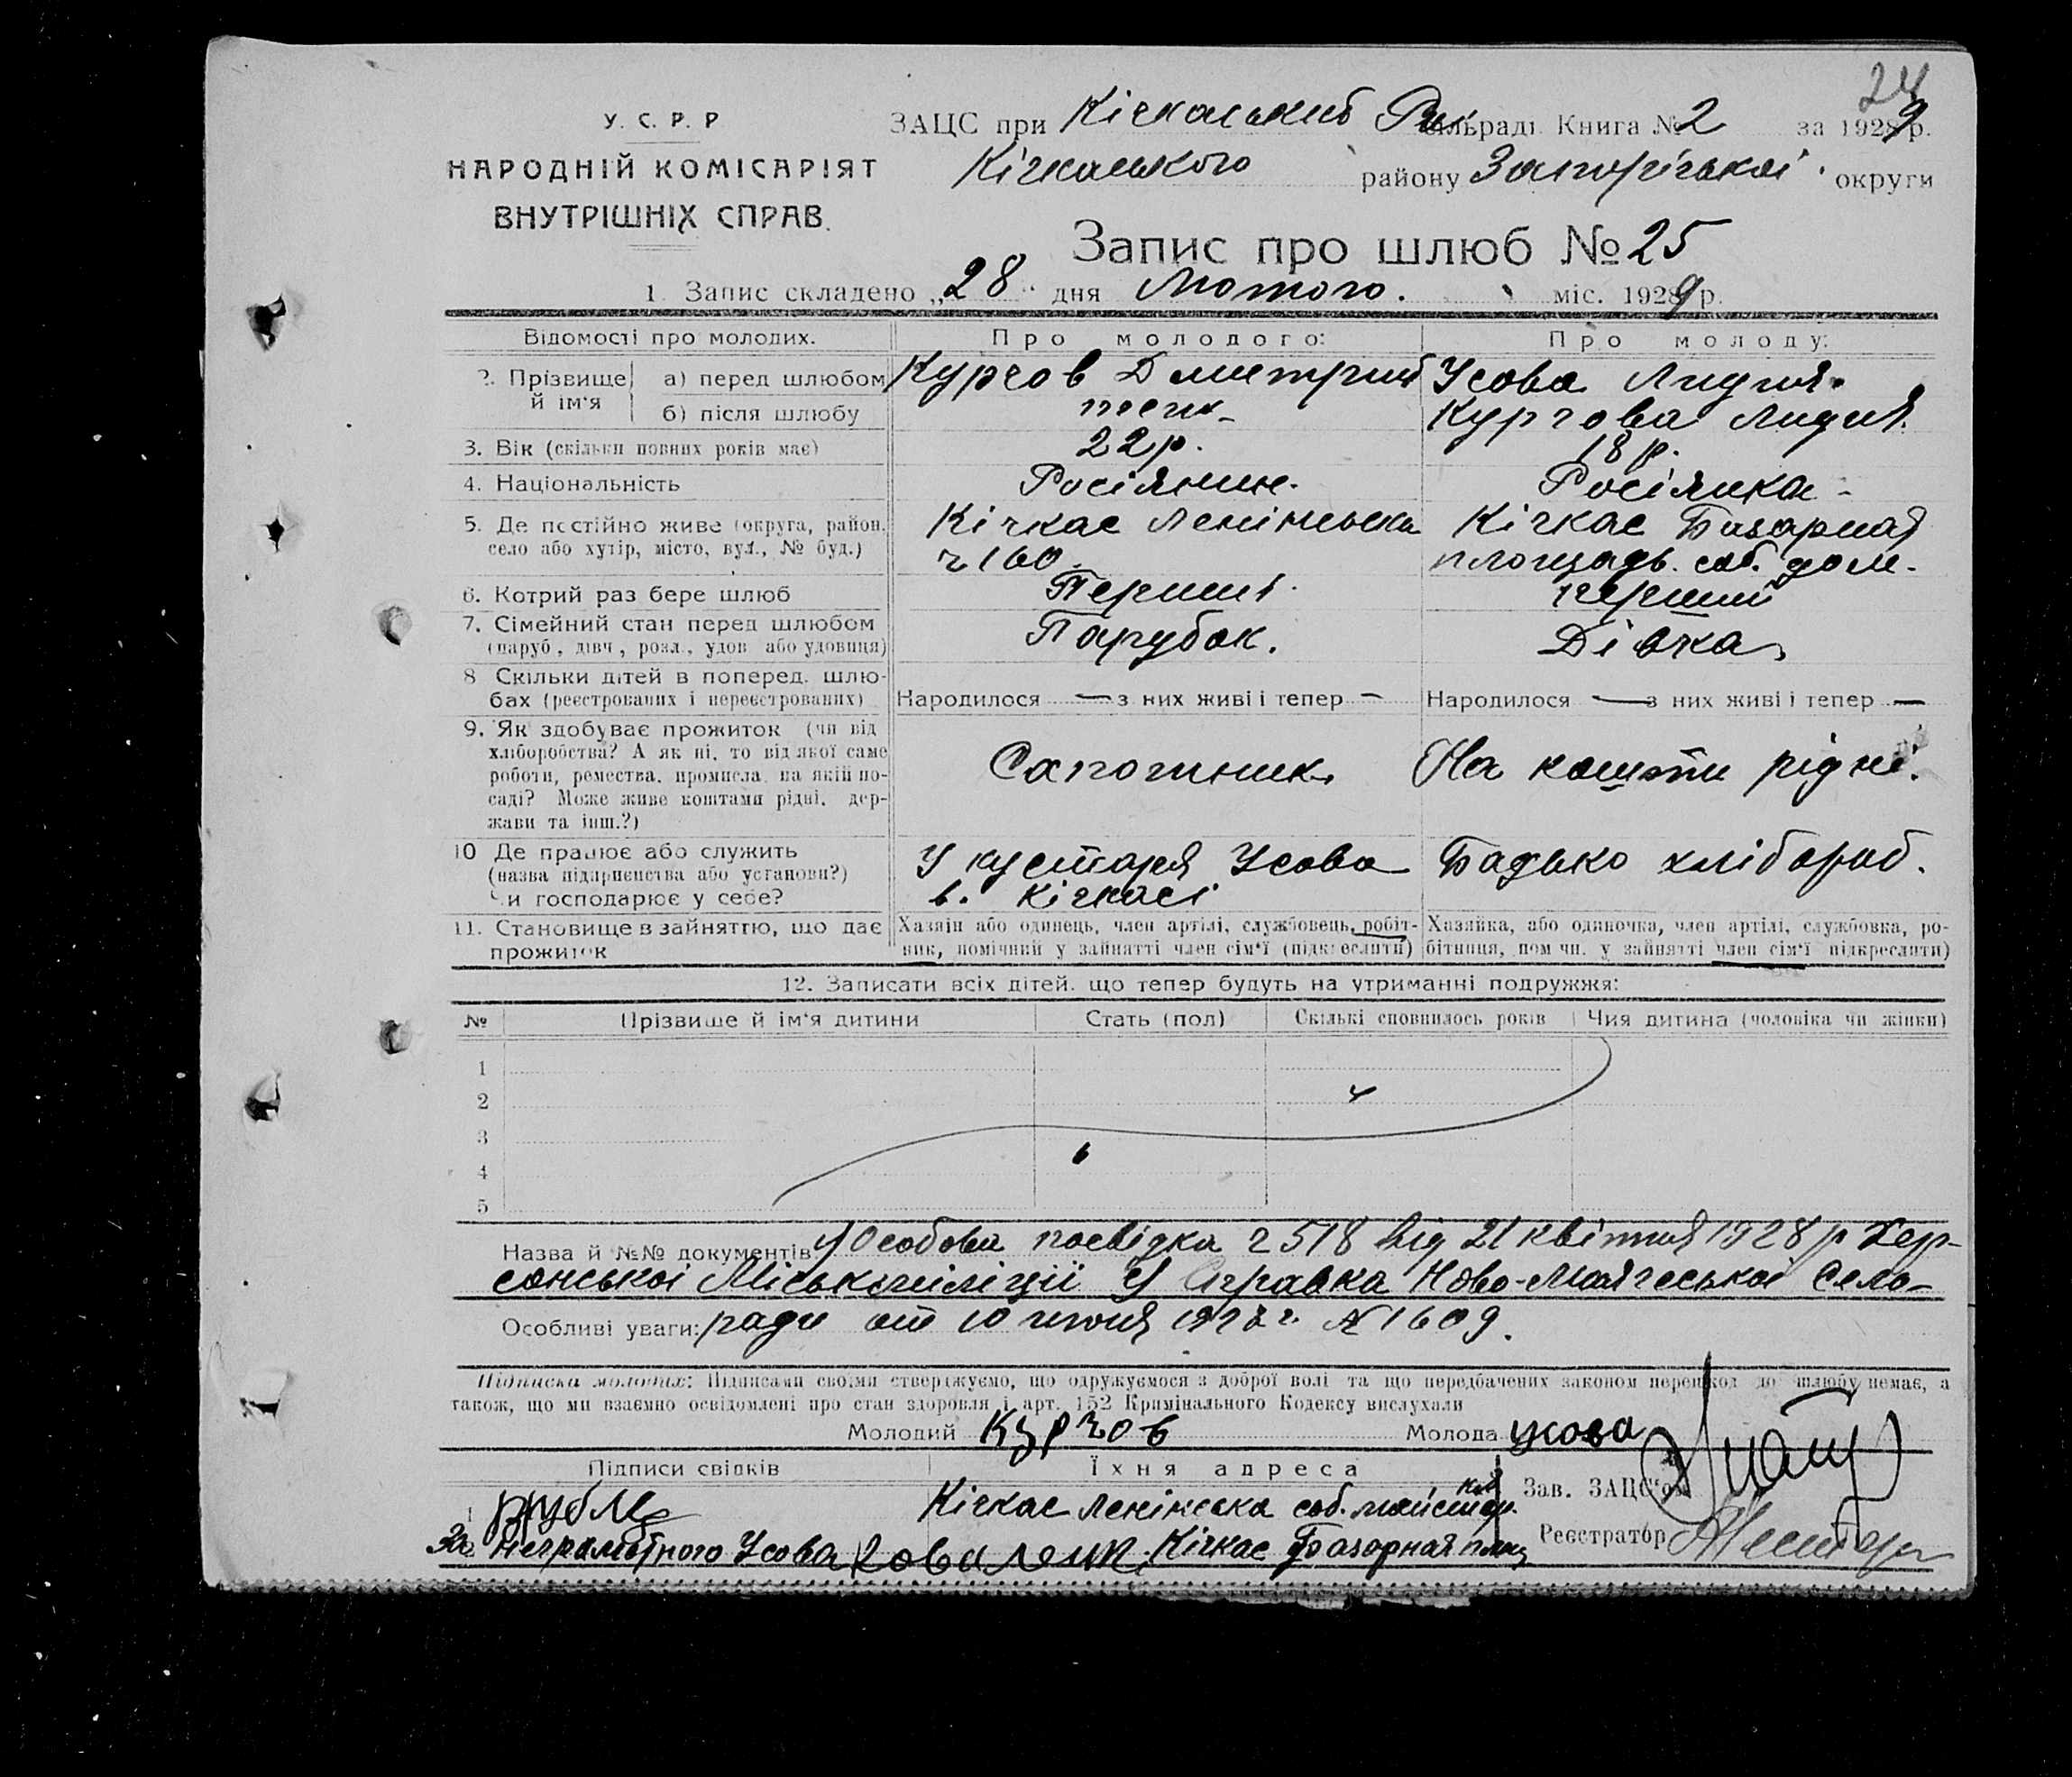 24
У. С. Р. Р
НАРОДНІЙ КОМІСАРІЯТ
ВНУТРІШНІХ СПРАВ.
ЗАЦС при Кічкаський Рик сільраді Книга № 2 за 1929 р.
Кічкаського району Запорізької округи
Запис про шлюб № 25
1. Запис складено „28" дня Лютого. міс. 1929 р.
Відомості про молодих. Про молодого: Про молоду:
2. Прізвище й ім'я а) перед шлюбом Курзов Дмитрий Усова Лидия.
б) після шлюбу теж Курзова Лидия.
3. Вік (скільки повних років має) 22 р. 18 р.
4. Національність Росіянин. Росіянка
5. Де постійно живе (округа, район, Кічкас Ленінська Кічкас Базарная
село або хутір, місто, вул., № буд.) ч 160. площадь. соб. дом.
6. Котрий раз бере шлюб Перший. перший
7. Сімейний стан перед шлюбом Парубок. Дівка
(паруб., дівч., розл., удов. або удовиця)
8 Скільки дітей в поперед. шлю-
бах (реєстрованих і нереєстрованих) Народилося — з них живі і тепер — Народилося — з них живі і тепер —
9. Як здобуває прожиток (чи від
хліборобства? А як ні, то від якої саме
роботи, ремества, промисла, на якій по- Сапожник На кошти рідні.
саді? Може живе коштами рідні, дер-
жави та інш.?)
10 Де працює або служить У кустаря Усова Бадько хлібороб.
(назва підприємства або установи?) в. Кічкасі
Чи господарює у себе?
11. Становище в зайняттю, що дає Хазяїн або одинець, член артілі, службовець, робіт- Хазяйка, або одиночка, член артілі, службовка, ро-
прожиток ник, помічний у зайнятті член сім'ї (підкреслити) бітниця, помічн. у зайнятті член сім'ї підкреслити)
12. Записати всіх дітей, що тепер будуть на утриманні подружжя:
№ Прізвище й ім'я дитини Стать (пол) Скількі сповнилось років Чия дитина (чоловіка чи жінки)
1
2
3
4
5
Назва й №№ документів: 1) Особова посвідка ч 518 від 21 квітня 1928 р Хер-
сонської Міськміліції Справка Ново- Село-
Особливі уваги: ради от 10 1609.
Підписка молодих: Підписами своїми стверджуємо, що одружуємося з доброї волі та що передбачених законом перешкод до шлюбу немає, а
також, що ми взаємно освідомлені про стан здоровля і арт. 152 Кримінального Кодексу вислухали
Молодий Курзов Молода Усова
Підписи свідків Їхня адреса
Зав. ЗАЦС'ом
1 Кічкас Ленінська соб.
За неграмотного Усова Коваленк Кічкас Базарная площ
Реєстратор